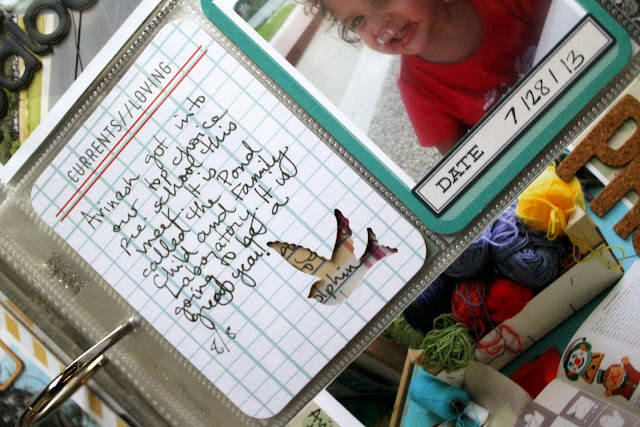 CURRENTS//LOVING
Avinash got into
our top choice
Pre-school this
week. It is
called the Pond
Child and Family
Laboratory. It is
going to be a
great year!
8/2
DATE 7/28/13